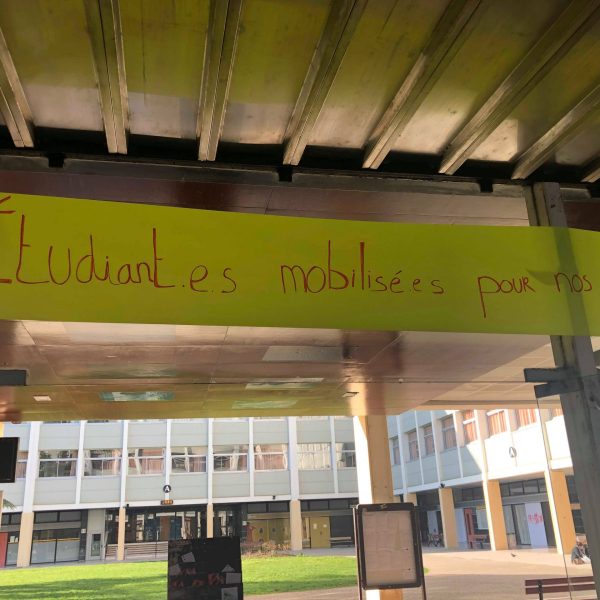 Étudiant.e.s mobilisé.e.s pour nos